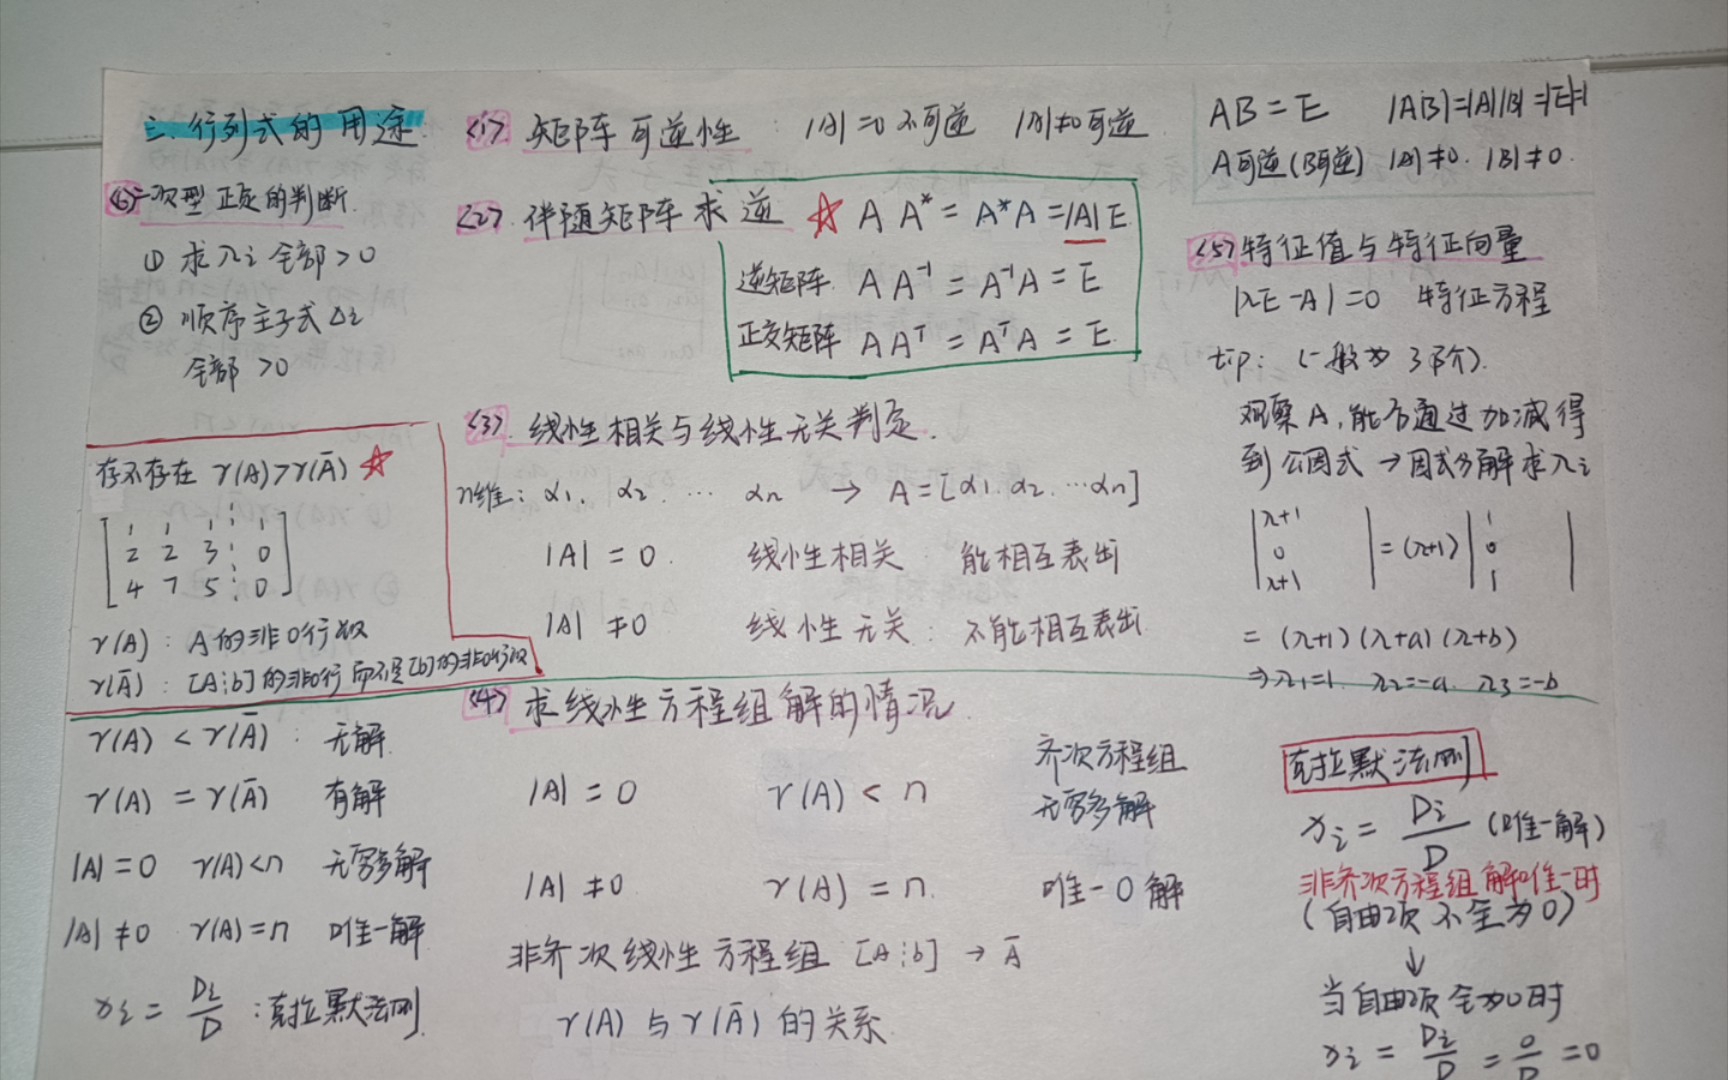 三、行列式的用途
<1> 矩阵可逆性 |A|=0 不可逆 |A|≠0 可逆
AB=E |AB|=|A||B|=|E|=1
A可逆(B可逆) |A|≠0. |B|≠0.
<2> 伴随矩阵求逆 ☆ A A* = A*A = |A|E
逆矩阵. A A⁻¹ = A⁻¹A = E
正交矩阵 A Aᵀ = AᵀA = E.
<3>. 线性相关与线性无关判定.
n维: α1. α2 … αn → A=[α1. α2. …αn]
|A| = 0. 线性相关: 能相互表出
|A| ≠0 线性无关: 不能相互表出
<4> 求线性方程组解的情况.
|A| = 0 r(A) < n 齐次方程组 无穷多解
|A| ≠0. r(A) = n. 唯一0解
非齐次线性方程组 [A⋮b] → Ā
r(A) 与 r(Ā) 的关系.
r(A) < r(Ā): 无解.
r(A) = r(Ā) 有解
|A|=0 r(A)<n 无穷多解
|A|≠0 r(A)=n 唯一解
xi = Di/D :克拉默法则.
存不存在 r(A)>r(Ā) ☆
[1 1 1 ⋮ 1
2 2 3 ⋮ 0
4 7 5 ⋮ 0]
r(A): A的非0行数
r(Ā): [A⋮b]的非0行而不是[b]的非0行数
克拉默法则
xi = Di/D (唯一解)
非齐次方程组解唯一时
(自由项不全为0)
↓
当自由项全为0时
xi = Di/D = 0/D =0
<5>特征值与特征向量
|λE-A|=0 特征方程
tip: (一般为3阶).
观察A,能否通过加减得
到公因式→因式分解求λi
|λ+1 0 λ+1| =(λ+1) |1 0 1|
= (λ+1)(λ+a)(λ+b)
⇒λ1=1. λ2=-a. λ3=-b
<6>二次型正定的判断.
① 求λi全部>0
② 顺序主子式Δi
全部>0